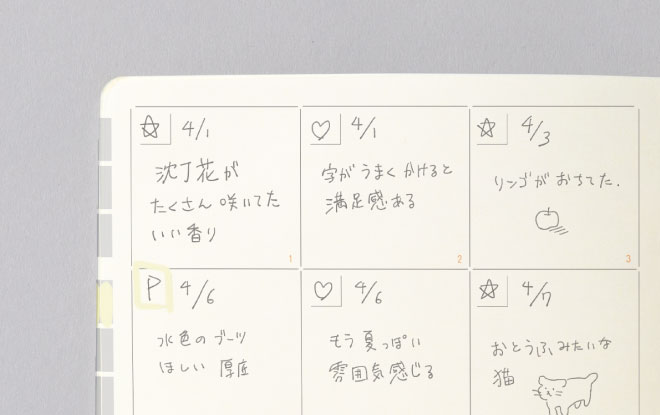 4/1
沈丁花が
たくさん 咲いてた
いい香り
1
4/1
字が うまく かけると
満足感ある
2
4/3
リンゴが おちてた.
3
P 4/6
水色の ブーツ
ほしい 厚底
4/6
もう 夏っぽい
雰囲気感じる
4/7
おとうふみたいな
猫